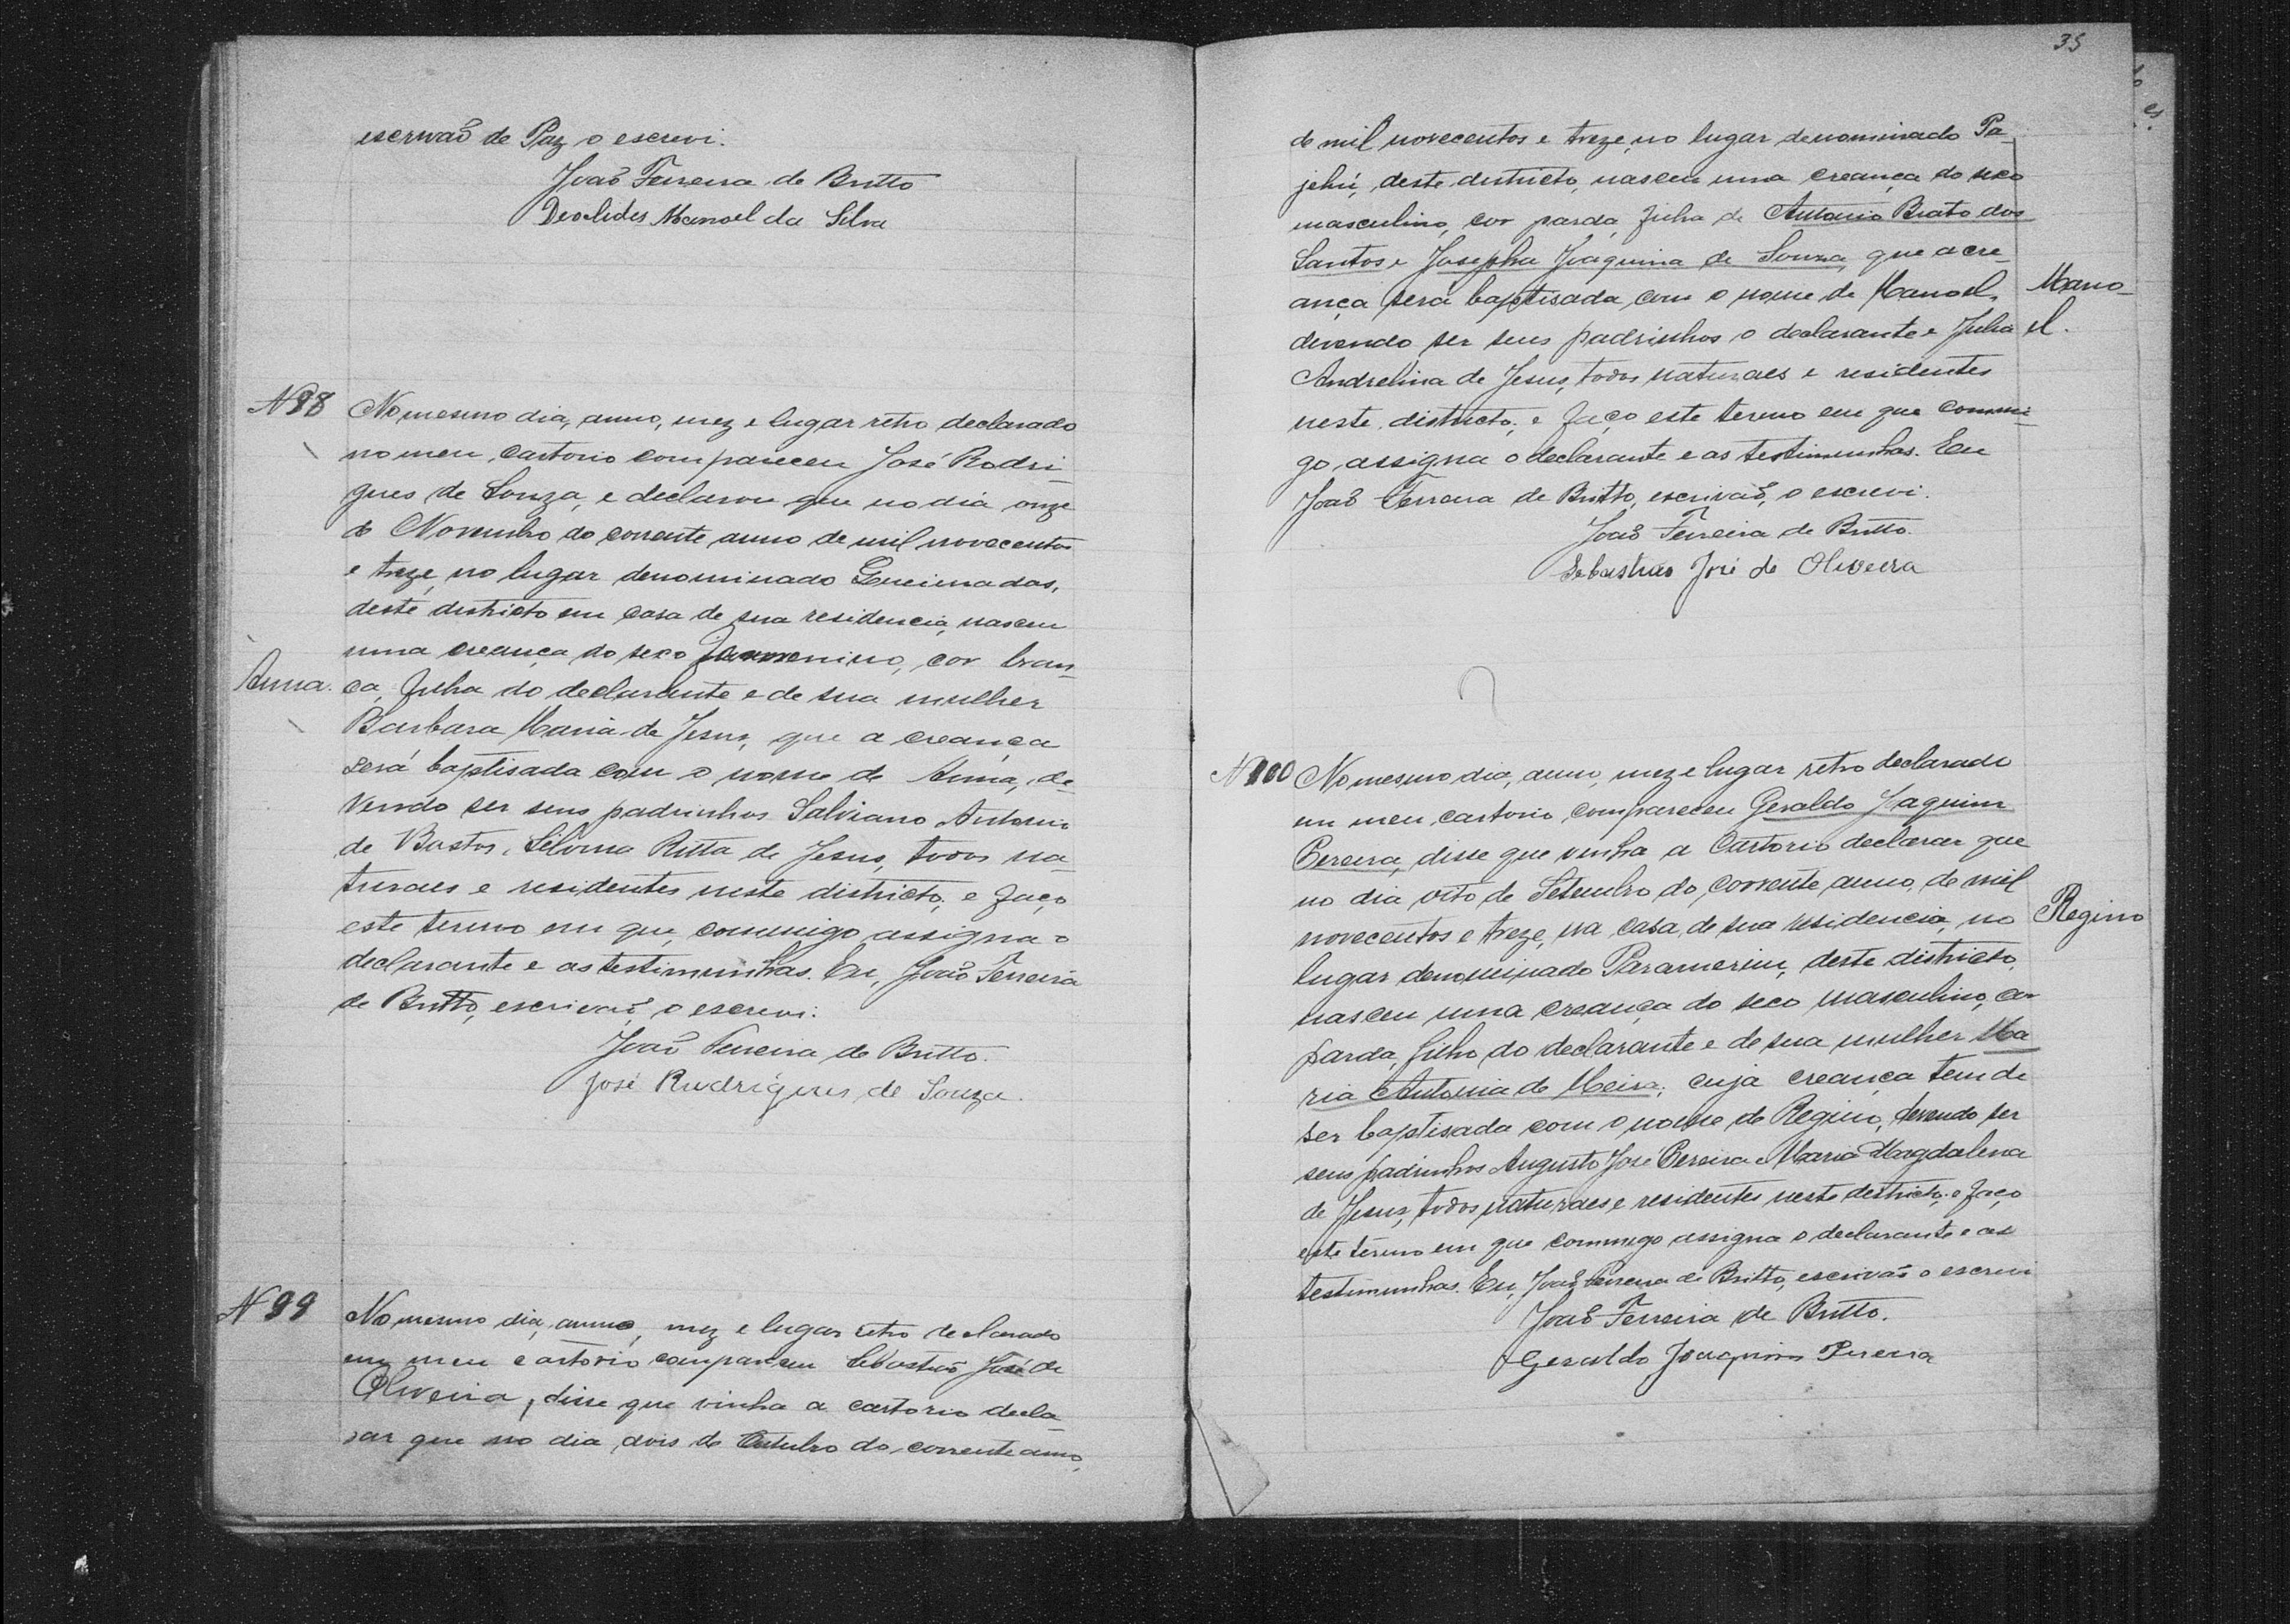 escrivaõ de Paz o escrevi.
Joaõ Ferreira de Britto
Deoclides Manoel da Silva
N 98
No mesmo dia, anno, mez e lugar retro declarado
no meu cartorio compareceu José Rodri-
gues de Souza, e declarou que no dia onze
de Novembro do corrente anno de mil novecentos
e treze, no lugar denominado Queimadas,
deste districto em casa de sua residencia, nasceu
uma creança do sexo femenino, cor bran-
Anna.
ca, filha do declarante e de sua mulher
Barbara Maria de Jesus, que a creança
será baptisada com o nome de Anna, de-
vendo ser seus padrinhos Salviano Antonio
de Bastos, Ritta de Jesus, todos na-
turaes e residentes neste districto; e faço
este termo em que commigo assigna o
declarante e as testimunhas. Eu, Joaõ Ferreira
de Britto, escrivaõ, o escrevi.
Joaõ Ferreira de Britto.
José Rudrigues de Souza.
N 99
No mesmo dia, anno, mez e lugar retro declarado
em meu cartorio compareceu Sebastiaõ José de
Oliveira, disse que vinha a cartorio decla
rar que no dia dois de Outubro do corrente anno,
35
de mil novecentos e treze, no lugar denominado Pa-
jehú, deste districto, nasceu uma creança do sexo
masculino, cor parda, filha de Antonio Beato dos
Santos e Josepha Joaquina de Souza, que a cre-
ança será baptisada com o nome de Manoel,
Mano-
devendo ser seus padrinhos o declarante e Julia
el.
Andrelina de Jesus, todos naturaes e residentes
neste districto; e faço este termo em que commi-
go assigna o declarante e as testimunhas. Eu
Joaõ Ferreira de Britto, escrivaõ, o escrevi.
Joaõ Ferreira de Britto.
Sebastiaõ José de Oliveira
N 100
No mesmo dia, anno, mez e lugar retro declarado
em meu cartorio compareceu Geraldo Joaquim
Pereira, disse que vinha a Cartorio declarar que
no dia oito de Setembro do corrente anno, de mil
novecentos e treze, na casa de sua residencia, no
Regino
lugar denominado Paramerim, deste districto,
nasceu uma creança do seco masculino, cor
parda, filho do declarante e de sua mulher Ma
ria Antonia de Meira; cuja creança tem de
ser baptisada com o nome de Regino, devendo ser
seus padrinhos Augusto José Pereira e Maria Magdalena
de Jesus, todos naturaes e residentes neste districto; e faço
este termo em que commigo assigna o declarante e as
testimunhas. Eu, Joaõ Ferreira de Britto, escrivaõ o escrevi
Joaõ Ferreira de Britto.
Geraldo Joaquim Pereira